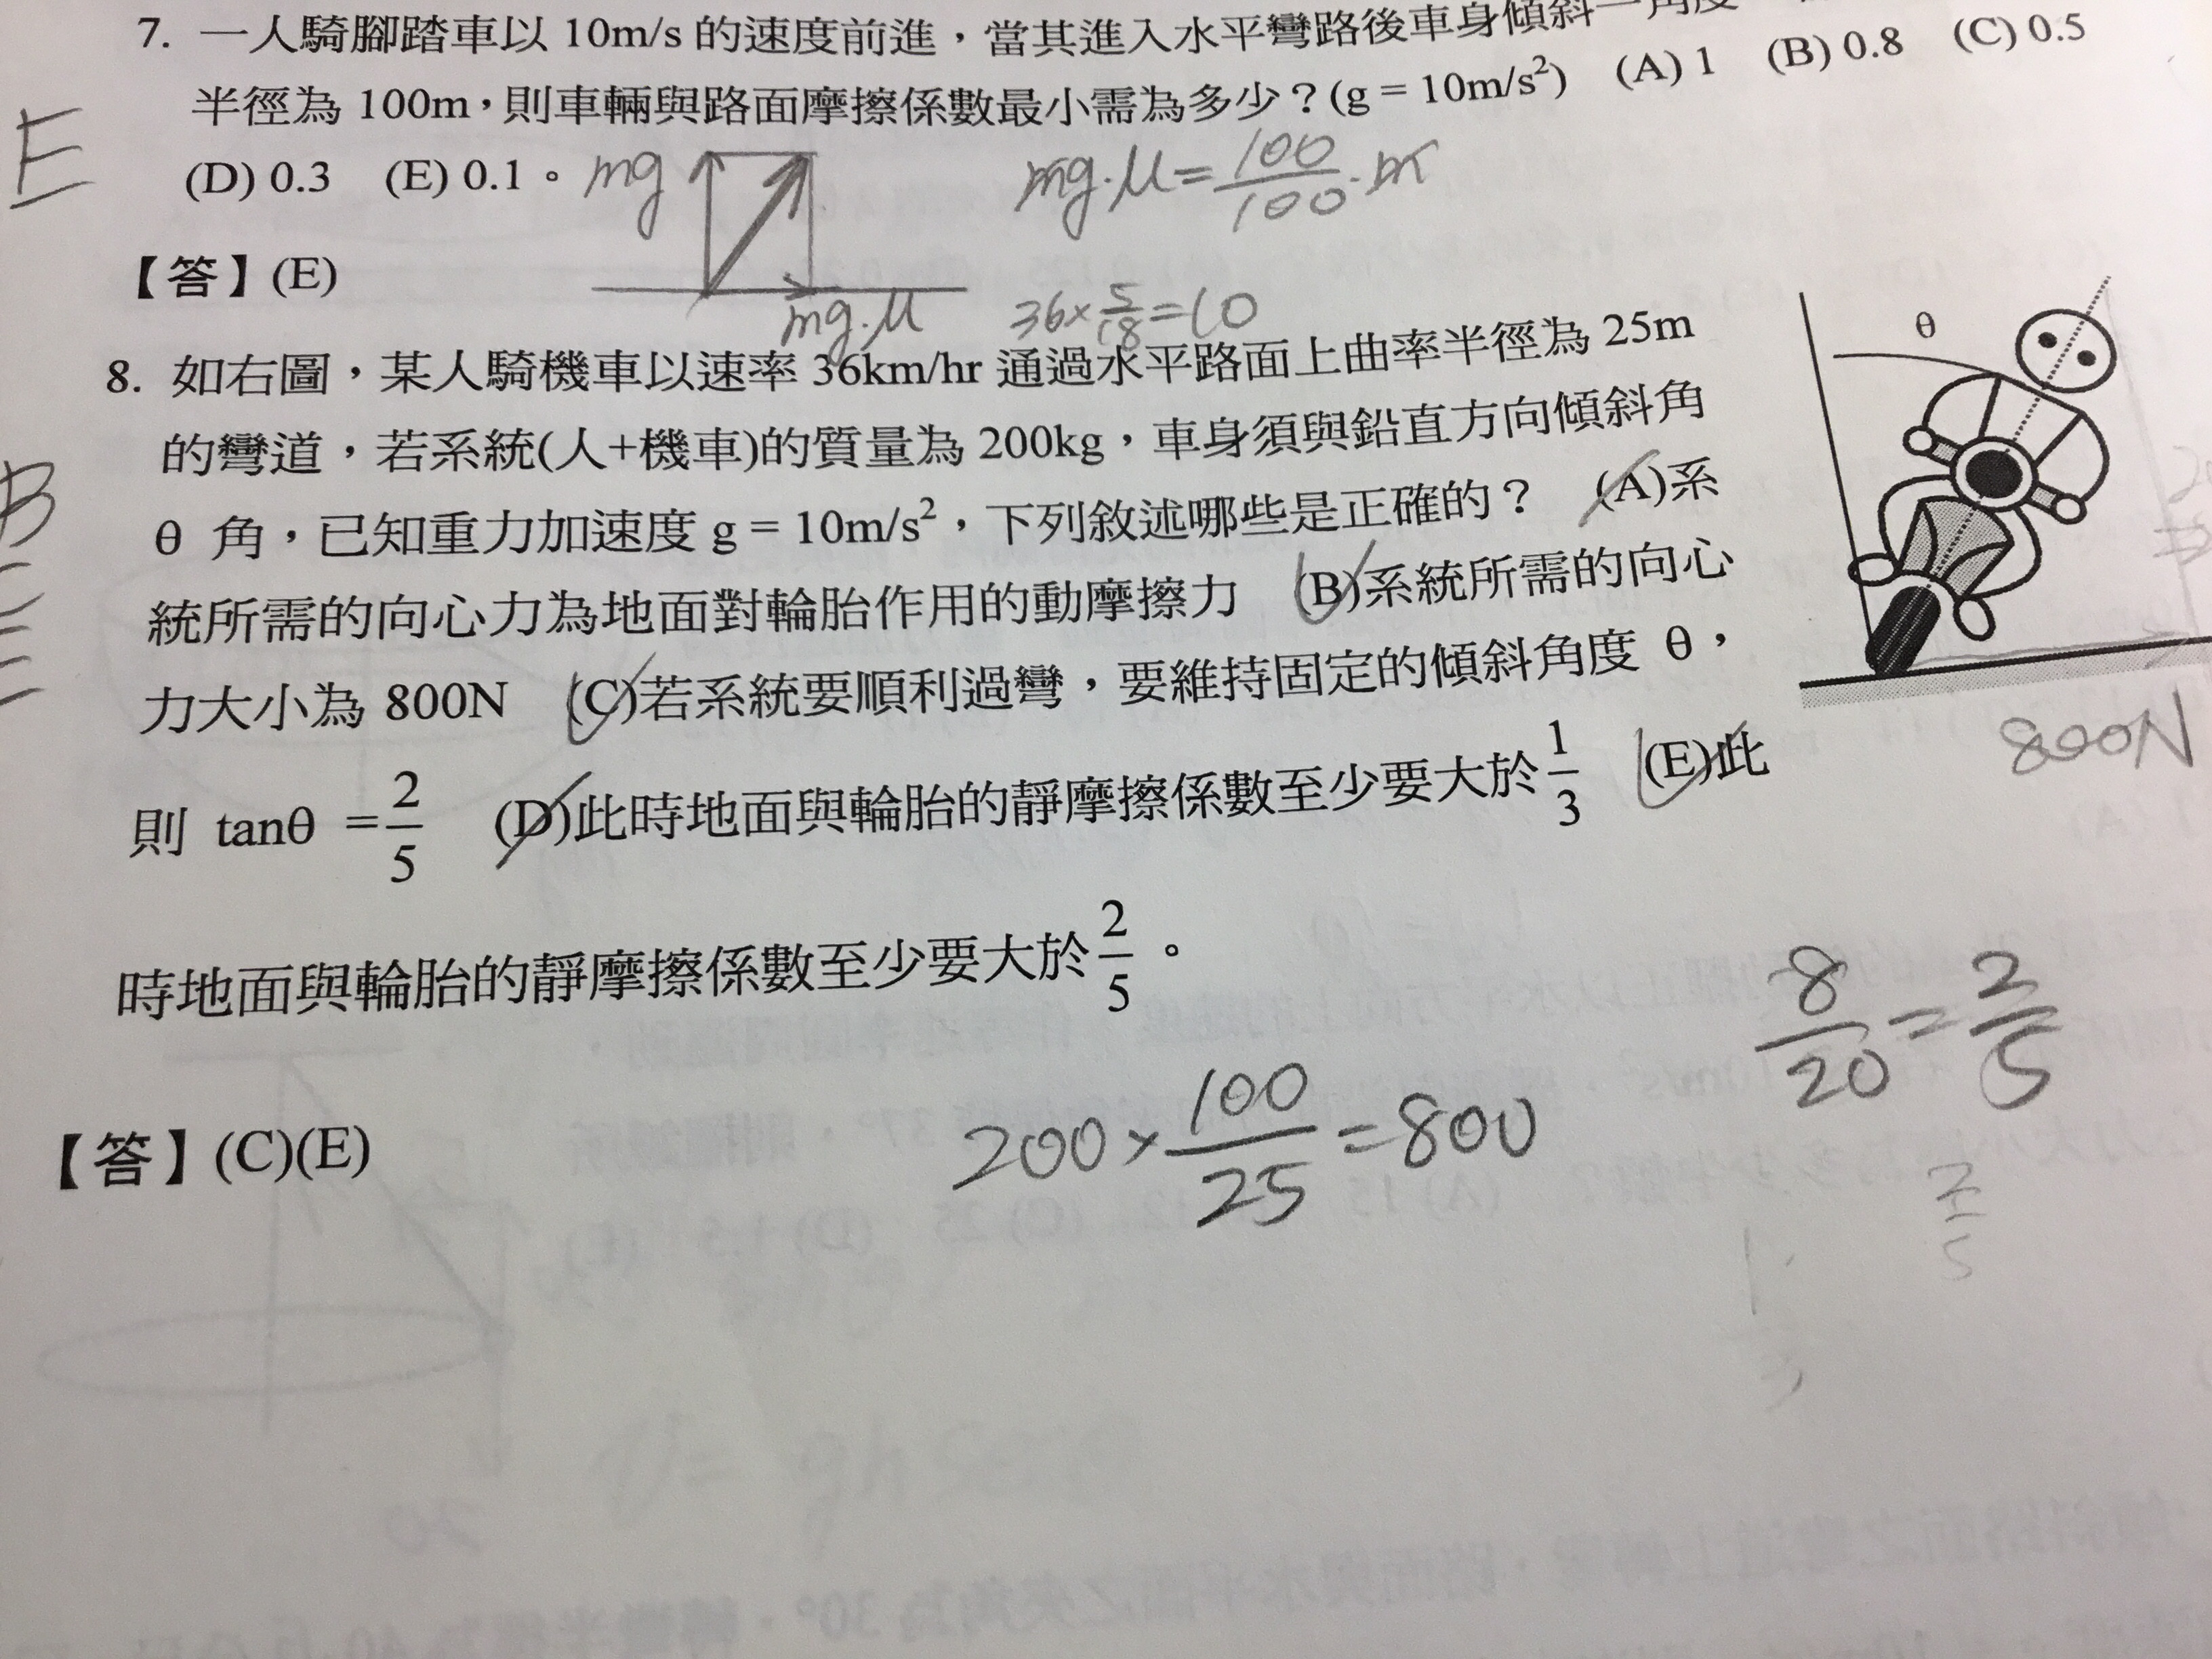 7. 一人騎腳踏車以 10m/s 的速度前進，當其進入水平彎路後車身傾斜一角度
半徑為 100m，則車輛與路面摩擦係數最小需為多少？(g = 10m/s²) (A) 1 (B) 0.8 (C) 0.5
E
(D) 0.3 (E) 0.1。
mg
mg·μ = 100/100 · m
【答】(E)
mg·μ
36×5/18=10
8. 如右圖，某人騎機車以速率 36km/hr 通過水平路面上曲率半徑為 25m
θ
的彎道，若系統(人+機車)的質量為 200kg，車身須與鉛直方向傾斜角
B
θ 角，已知重力加速度 g = 10m/s²，下列敘述哪些是正確的？ (A)系
C
統所需的向心力為地面對輪胎作用的動摩擦力 (B)系統所需的向心
E
力大小為 800N (C)若系統要順利過彎，要維持固定的傾斜角度 θ，
800N
則 tanθ = 2/5 (D)此時地面與輪胎的靜摩擦係數至少要大於 1/3 (E)此
時地面與輪胎的靜摩擦係數至少要大於 2/5。
8/20 = 2/5
200×100/25=800
【答】(C)(E)
2/5